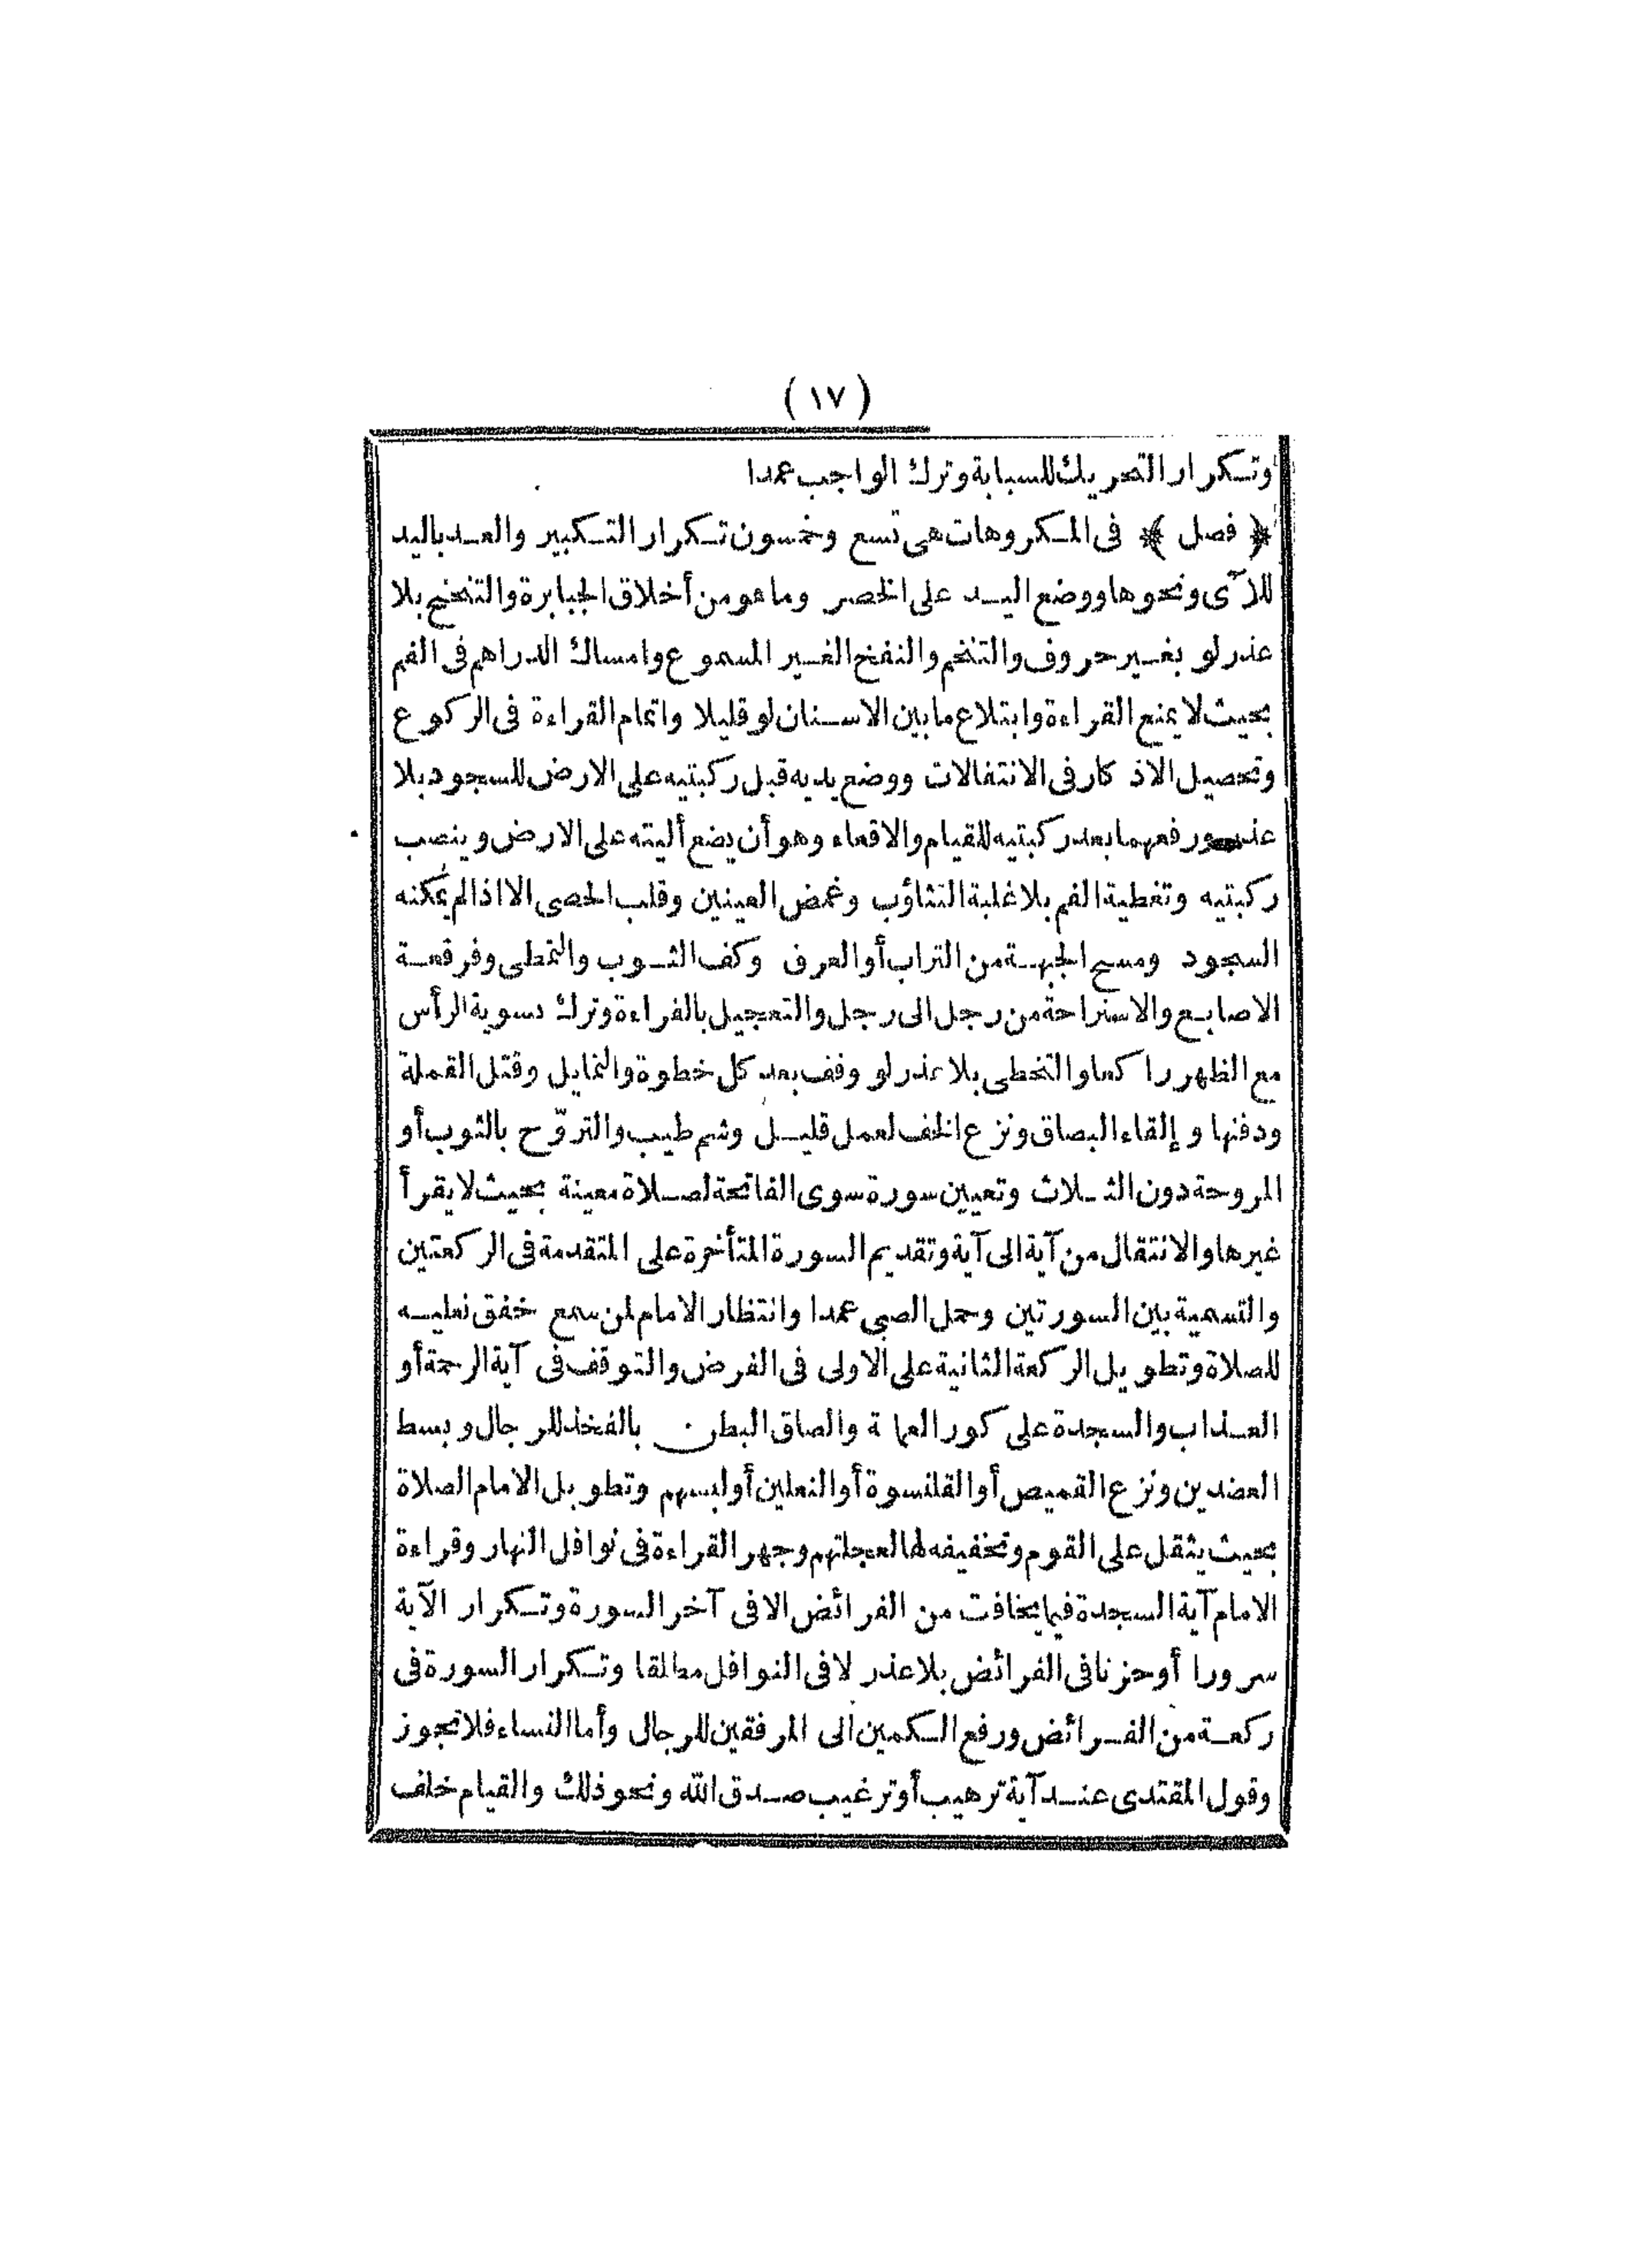 (١٧)
وتكرار التحريك للسبابة وترك الواجب عمدا
﴿فصل﴾ فى المكروهات هى تسع وخمسون تكرار التكبير والعد باليد
للآى ونحوها ووضع اليد على الخصر وما هو من أخلاق الجبابرة والتنحنح بلا
عذر لو بغير حروف والتنخم والنفخ الغير المسموع وامساك الدراهم فى الفم
بحيث لا يمنع القراءة وابتلاع ما بين الاسنان لو قليلا واتمام القراءة فى الركوع
وتحصيل الاذكار فى الانتقالات ووضع يديه قبل ركبتيه على الارض للسجود بلا
عذر ورفعهما بعد ركبتيه للقيام والاقعاء وهو أن يضع أليته على الارض وينصب
ركبتيه وتغطية الفم بلا غلبة التثاؤب وغمض العينين وقلب الحصى الا اذا لم يمكنه
السجود ومسح الجبهة من التراب أو العرق وكف الثوب والتمطى وفرقعة
الاصابع والاستراحة من رجل الى رجل والتعجيل بالقراءة وترك تسوية الرأس
مع الظهر راكعا والتخطى بلا عذر لو وقف بعد كل خطوة والتمايل وقتل القملة
ودفنها وإلقاء البصاق ونزع الخف لعمل قليل وشم طيب والتروّح بالثوب أو
المروحة دون الثلاث وتعيين سورة سوى الفاتحة لصلاة معينة بحيث لا يقرأ
غيرها والانتقال من آية الى آية وتقديم السورة المتأخرة على المتقدمة فى الركعتين
والتسمية بين السورتين وحمل الصبى عمدا وانتظار الامام لمن سمع خفق نعليه
للصلاة وتطويل الركعة الثانية على الاولى فى الفرض والتوقف فى آية الرحمة أو
العذاب والسجدة على كور العمامة والصاق البطن بالفخذ للرجال وبسط
العضدين ونزع القميص أو القلنسوة أو النعلين أو لبسهم وتطويل الامام الصلاة
بحيث يثقل على القوم وتخفيفه لها لعجلتهم وجهر القراءة فى نوافل النهار وقراءة
الامام آية السجدة فيما يخافت من الفرائض الا فى آخر السورة وتكرار الآية
سرورا أو حزنا فى الفرائض بلا عذر لا فى النوافل مطلقا وتكرار السورة فى
ركعة من الفرائض ورفع الكمين الى المرفقين للرجال وأما النساء فلا تجوز
وقول المقتدى عند آية ترهيب أو ترغيب صدق الله ونحو ذلك والقيام خلف